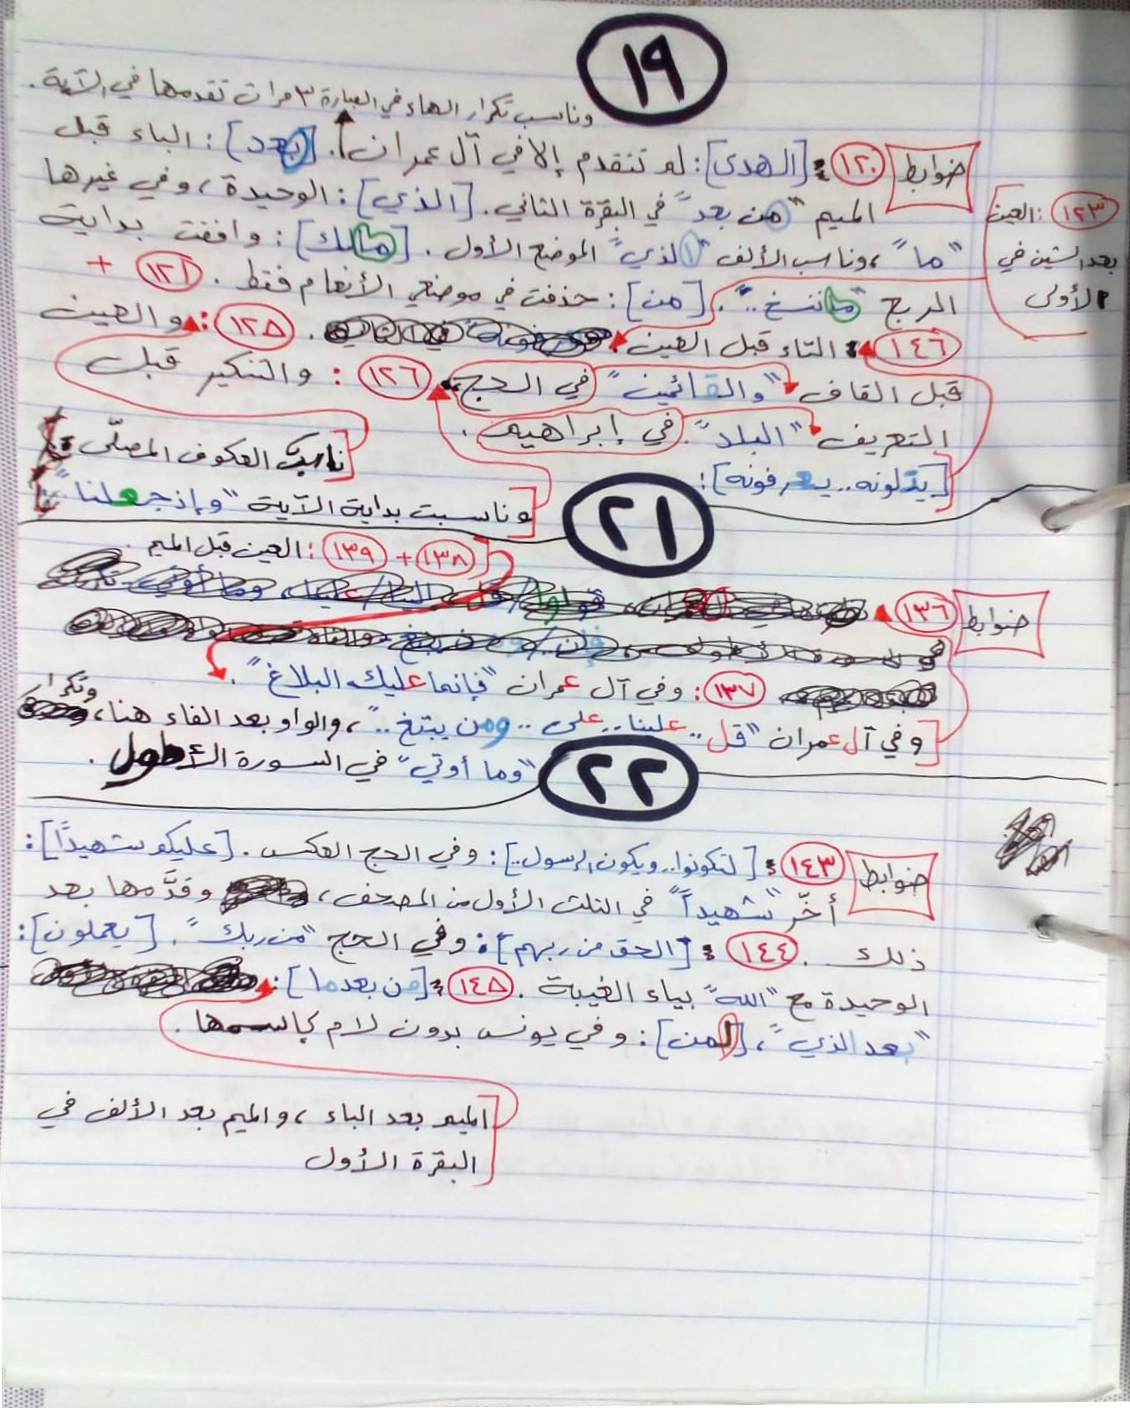 ١٩
وناسب تكرار الهاء في العبارة ٣ مرات تقدمها في الآية.
ضوابط ١٢٠: [الهدى]: لم تتقدم إلا في آل عمران. [بعد]: الباء قبل
الميم "من بعد" في البقرة الثاني. [الذي]: الوحيدة، وفي غيرها
"ما"، وناسب الألف "الذي" الموضع الأول. [مالك]: وافقت بداية
المربع "ما ننسخ..". [من]: حذفت في موضعي الأنعام فقط. ١٢١ +
١٢٣: العين
بعد الشين في
الأولى
١٤٦: التاء قبل العين. ١٢٥: والعين
قبل القاف "والقائمين" في الحج. ١٢٦: والتنكير قبل
التعريف "البلد" في إبراهيم.
ناسبت العكوف المصلّى
[يتلونه.. يعرفونه]:
وناسبت بداية الآية "وإذ جعلنا"
٢١
١٣٨ + ١٣٩: العين قبل الميم.
ضوابط ١٣٦
١٣٧: وفي آل عمران "فإنما عليك البلاغ".
وفي آل عمران "قل.. علينا.. على.. ومن يبتغ.."، والواو بعد الفاء هنا، وتكرار
"وما أوتي" في السورة الأطول.
٢٢
ضوابط ١٤٣: [لتكونوا.. ويكون الرسول..]: وفي الحج العكس. [عليكم شهيدًا]:
أخّر "شهيداً" في الثلث الأول من المصحف، وقدَّمها بعد
ذلك. ١٤٤: [الحق من ربهم]: وفي الحج "من ربك". [يعملون]:
الوحيدة مع "الله" بياء الغيبة. ١٤٥: [من بعد ما]:
"بعد الذي"، [لمن]: وفي يونس بدون لام كإسمها.
الميم بعد الباء، والميم بعد الألف في
البقرة الأول